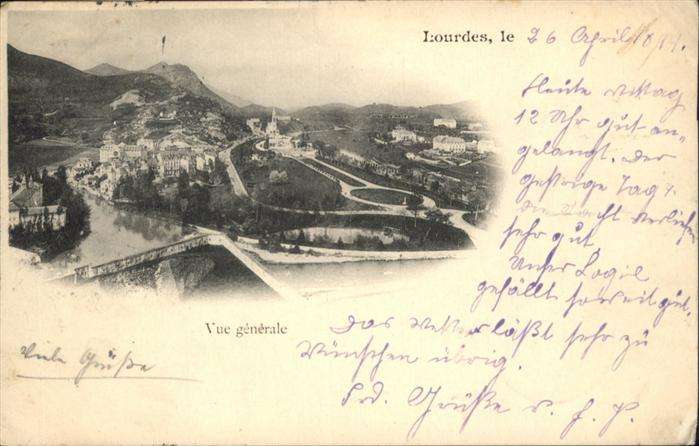 Lourdes, le 26 April
Heute Mittag
12 Uhr gut an-
gelangt, der
gestrige Tag
sehr gut
Unser Logis
gefällt soweit gut,
Vue générale
Das Wetter läßt sehr zu
Wünschen übrig.
Viele Grüße
Frd. Grüße v.